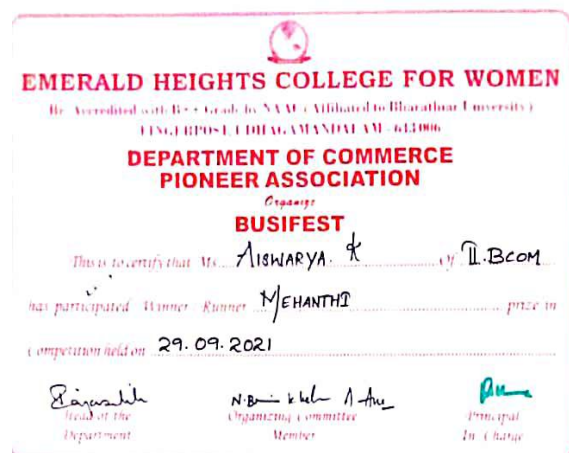 EMERALD HEIGHTS COLLEGE FOR WOMEN
Re-Accredited with B++ Grade by NAAC (Affiliated to Bharathiar University)
FINGERPOST, UDHAGAMANDALAM - 643006
DEPARTMENT OF COMMERCE
PIONEER ASSOCIATION
Organize
BUSIFEST
This is to certify that Ms. AISWARYA. K of II.BCOM
has participated Winner Runner MEHANTHI prize in
Competition held on 29.09.2021
Head of the Organizing Committee Principal
Department Member In-Charge